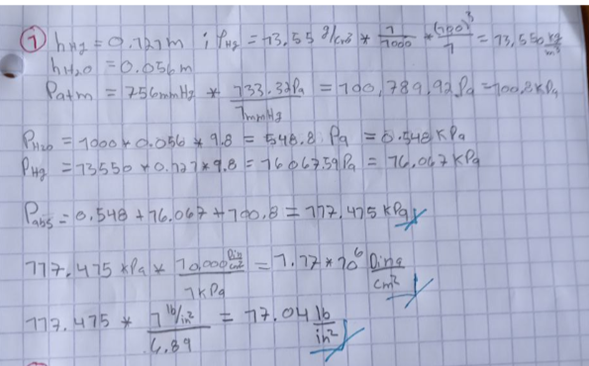 ① hHg = 0.121m ; ρHg = 13,55 g/cm³ * 1/1000 * (100)³/1 = 13,550 kg/m³
hH2O = 0.056m
Patm = 756mmHg * 133.32Pa/1mmHg = 100,789,92Pa = 100.8kPa
PH2O = 1000 * 0.056 * 9.8 = 548.8 Pa = 0.548 KPa
PHg = 13550 * 0.121 * 9.8 = 16067.59Pa = 16,067 KPa
Pabs = 0.548 + 16.067 + 100.8 = 117.415 kPa
117.415 KPa * 10,000 Din/cm² / 1KPa = 1.17 * 10⁶ Dina/cm²
117.415 * 1 lb/in² / 6.89 = 17.04 lb/in²